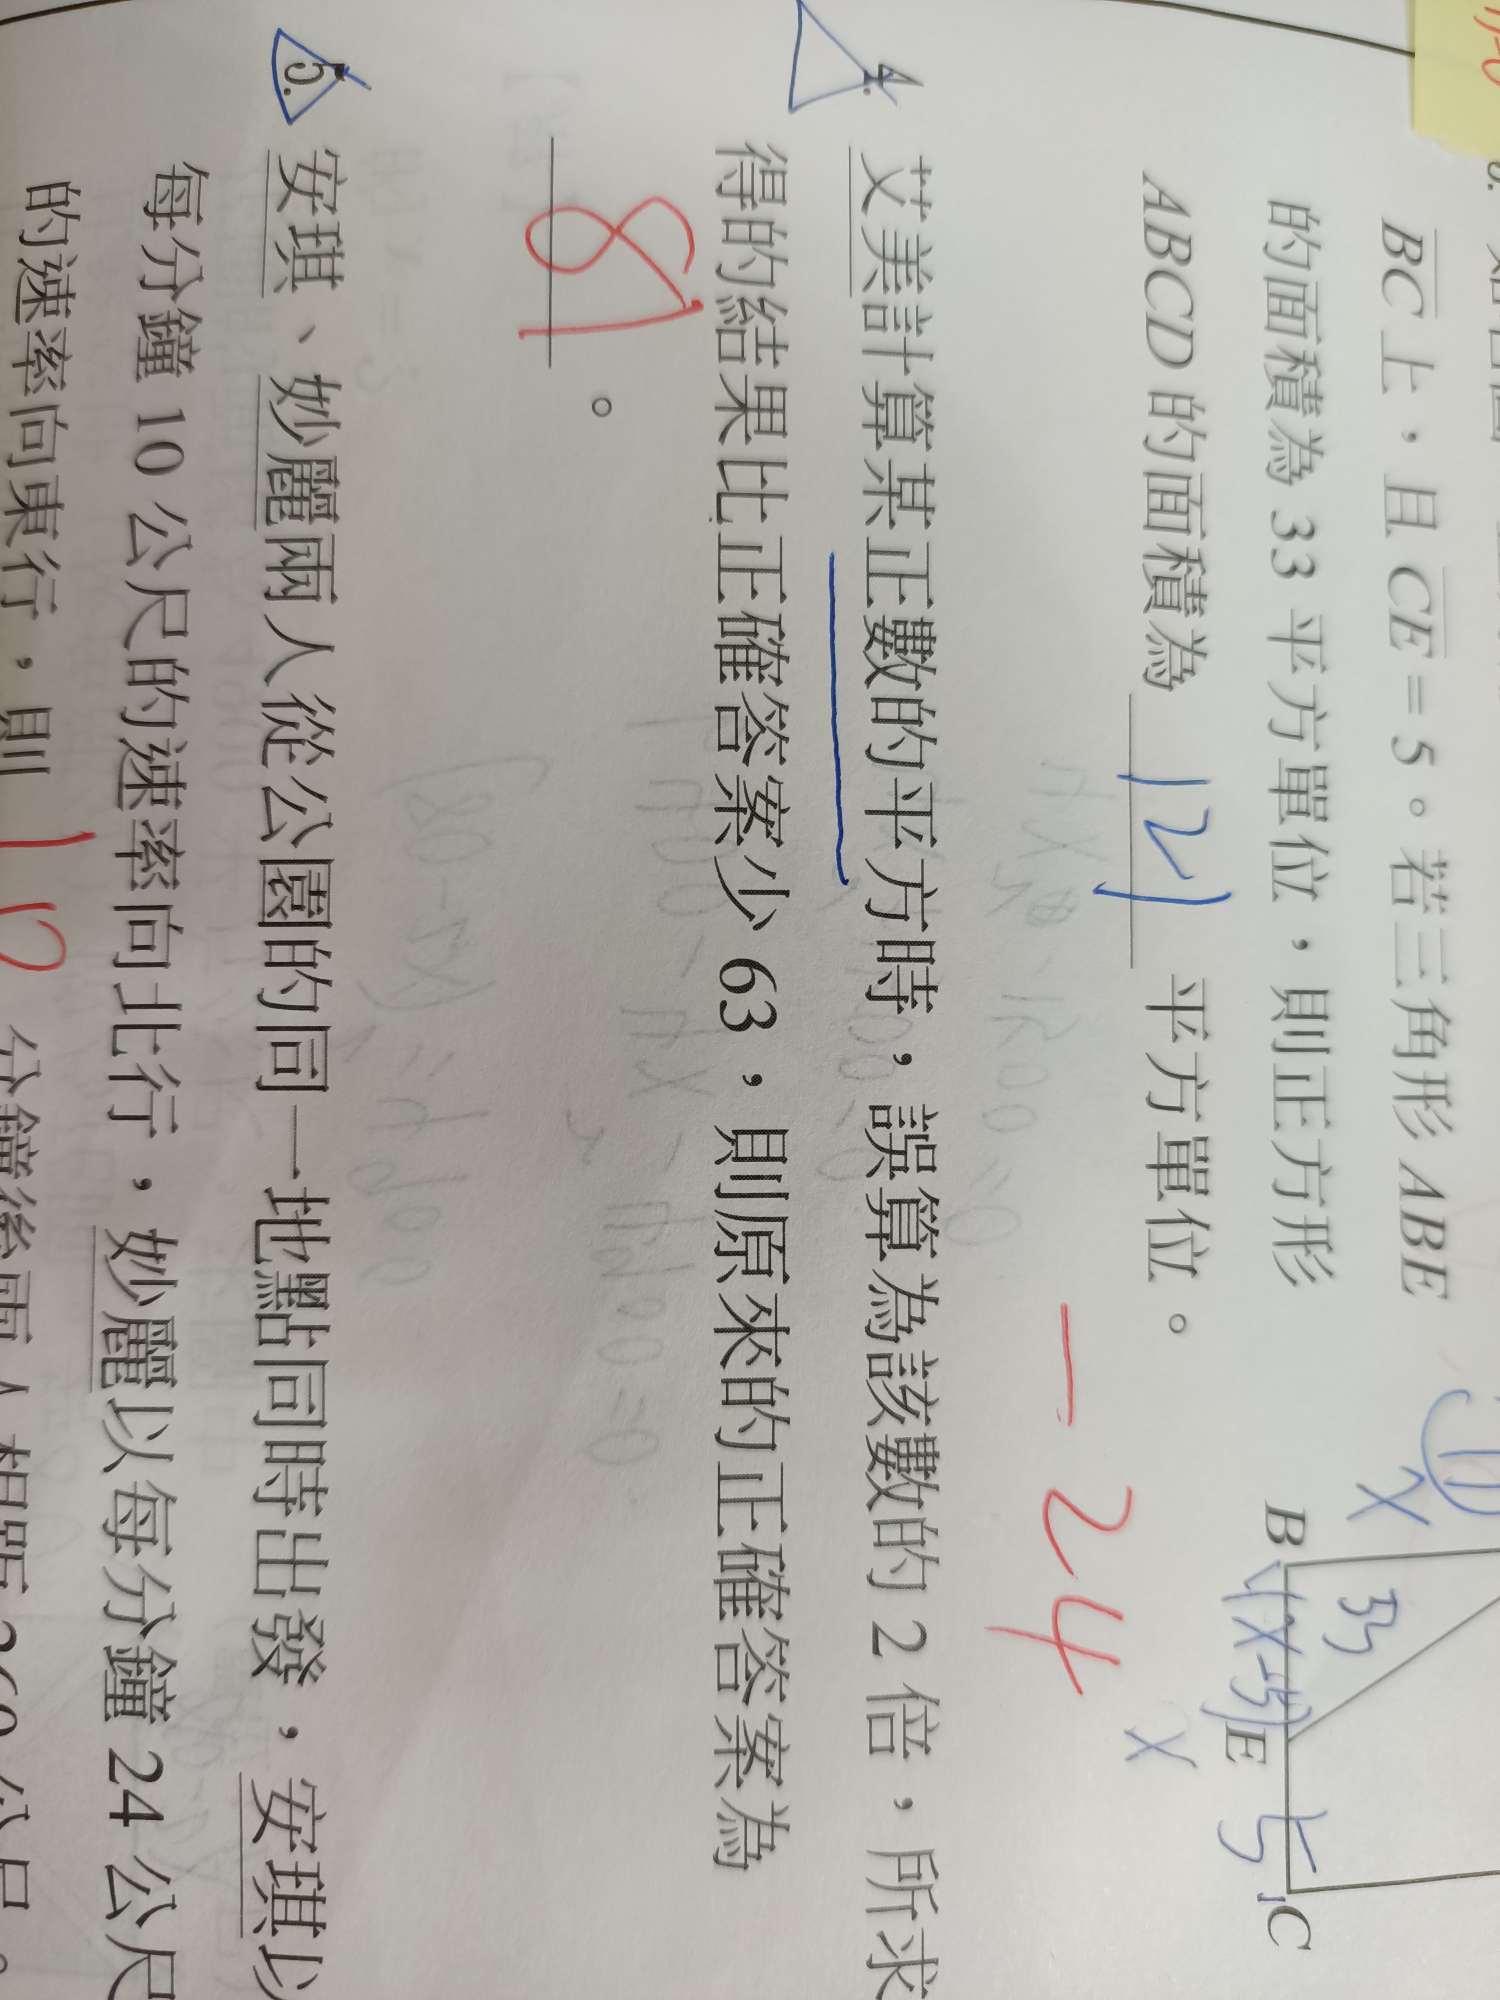 BC上，且 CE = 5。若三角形 ABE
的面積為 33 平方單位，則正方形
ABCD 的面積為 121 平方單位。
x
B 33
(x-5) E 5 C
x
-24
4. 艾美計算某正數的平方時，誤算為該數的 2 倍，所求
得的結果比正確答案少 63，則原來的正確答案為
81。
5. 安琪、妙麗兩人從公園的同一地點同時出發，安琪以
每分鐘 10 公尺的速率向北行，妙麗以每分鐘 24 公尺
的速率向東行，則 10 分鐘後兩人相距 260 公尺。